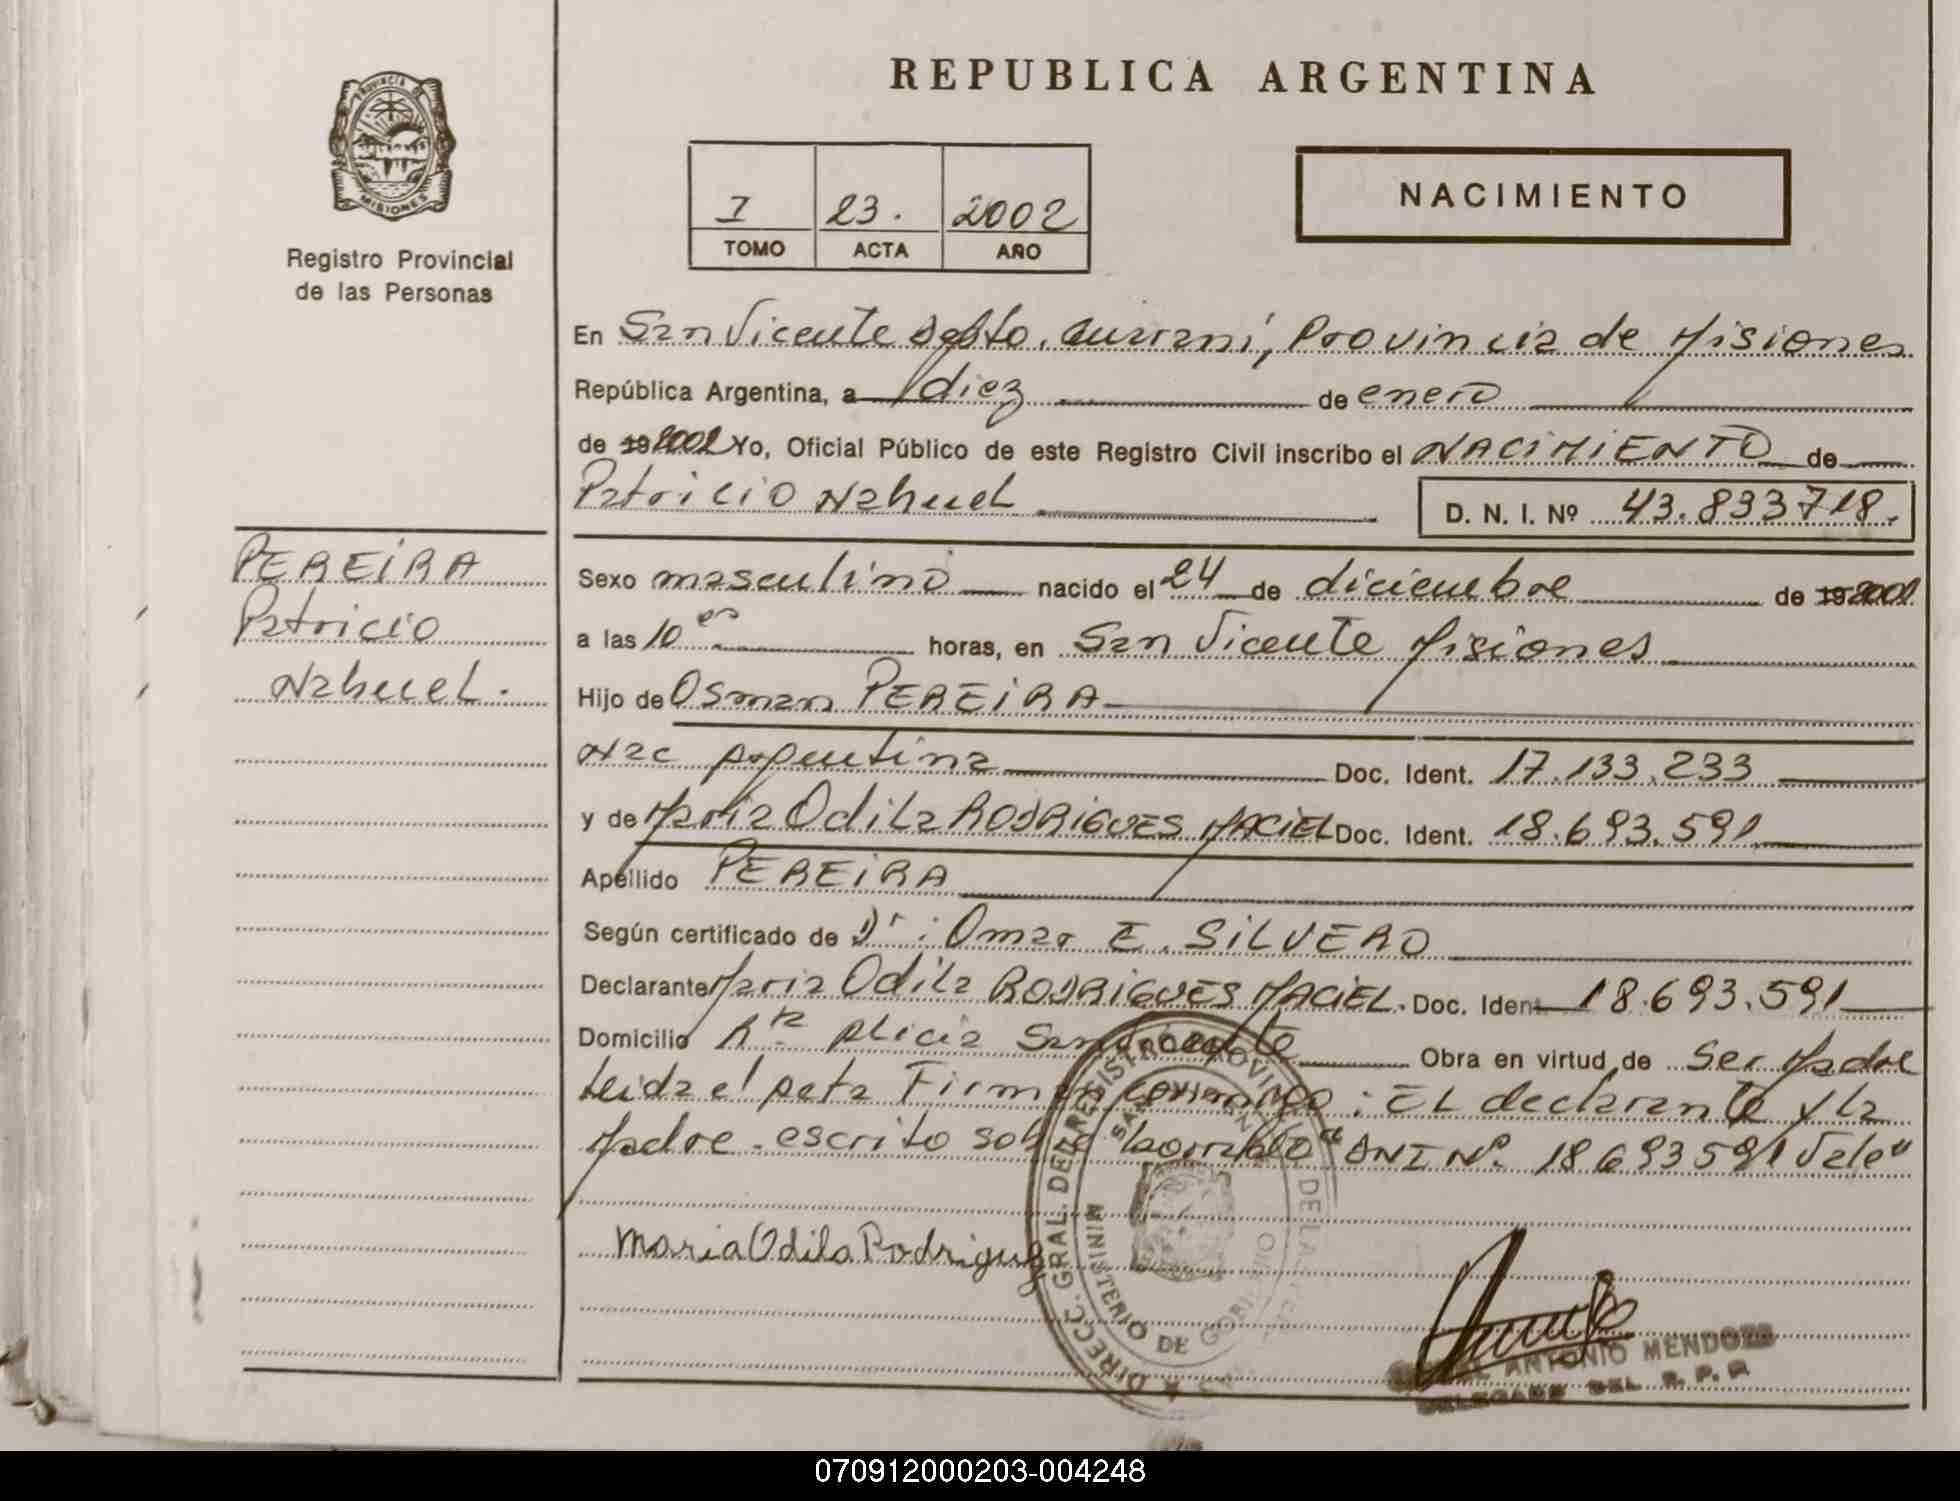 REPUBLICA ARGENTINA
PROVINCIA DE
MISIONES
Registro Provincial
de las Personas
I 23. 2002
TOMO ACTA AÑO
NACIMIENTO
En San Vicente Dpto. Guarani, Provincia de Misiones
República Argentina, a diez de enero
de 19 2002 Yo, Oficial Público de este Registro Civil inscribo el NACIMIENTO de
Patricio Nahuel
D. N. I. Nº 43.833718.
PEREIRA
Patricio
Nahuel.
Sexo masculino nacido el 24 de diciembre de 19 2001
a las 10 horas, en San Vicente Misiones
Hijo de Osman PEREIRA
Nac Argentina Doc. Ident. 17.133.233
y de Maria Odila RODRIGUES MACIEL Doc. Ident. 18.693.591
Apellido PEREIRA
Según certificado de Dr: Omar E. SILVERO
Declarante Maria Odila RODRIGUES MACIEL. Doc. Ident 18.693.591
Domicilio Alicia San Vicente Obra en virtud de Ser Madre
Leida el Acta Firman conmigo: EL declarante y la
Madre. escrito sobre borrado "DNI Nº 18693591 Vale"
Maria Odila Rodrigues
DIRECC. GRAL. DEL REGISTRO PROVINCIAL DE LAS
MINISTERIO DE GOBIERNO
ANTONIO MENDOZA
DELEGADO DEL R. P. P.
070912000203-004248